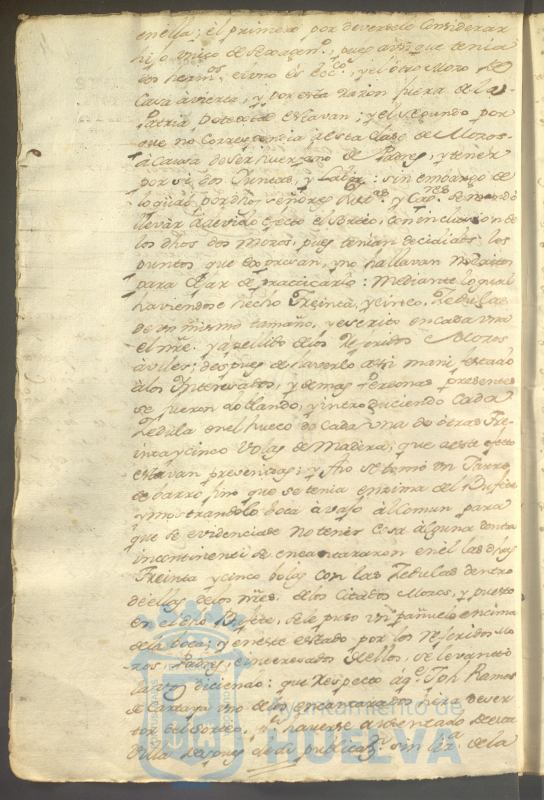 en ella; el primero por deversele Considerar
hijo unico de Sexagen.º, pues aunque tenia
dos herm.os, el uno es
Casa avierta, y por esta razon fuera de la
Patria Potestad estavan; y el segundo por
que no Correspondia a esta clase de Mozos
a Causa de ser huerfano de Padres, y tener
por si dos Yuntas, y Labor: sin embargo de
lo qual por dhos señores
llevar a devido efecto el Sorteo, con inclusion de
los dhos dos Mozos, pues tenian decididos los
puntos que expresan, y no hallavan
para dejar de practicarlo: Mediante lo qual
haviendose hecho Treinta, y cinco Zedulas
de un mismo tamaño, y escrito en cada una
el nre. y apellido de los referidos Mozos
utiles; despues de haverlo asi manifestado
a los Interesados, y demas Personas presentes
se fueron doblando, y introduciendo Cada
Zedula en el hueco de cada una de otras Tre
inta y cinco Volas de Madera, que a este efecto
estavan prevenidas; y se tomó un Tarro
de barro fino que se tenia enzima del Bufete
y mostrandolo boca avajo al Comun para
que se evidenciase no tener Cosa alguna dentro
incontinenti se encantararon en él las dhas
Treinta y cinco bolas con las Zedulas dentro
de ellas de los nres. de los Citados Mozos, y puesto
en el dho Bufete, se le puso un pañuelo encima
de la boca; y en este estado por los referidos Mo
zos, Padres, e interesados de ellos, se levantó
la voz diciendo: que respecto a q.e Jph Ramos
de Cartaya uno de los encantarados era deser
tor del Sorteo, p.r haverse ausentado de esta
Villa despues de su publicaz.n sin liz.a de la
Ayuntamiento de
HUELVA